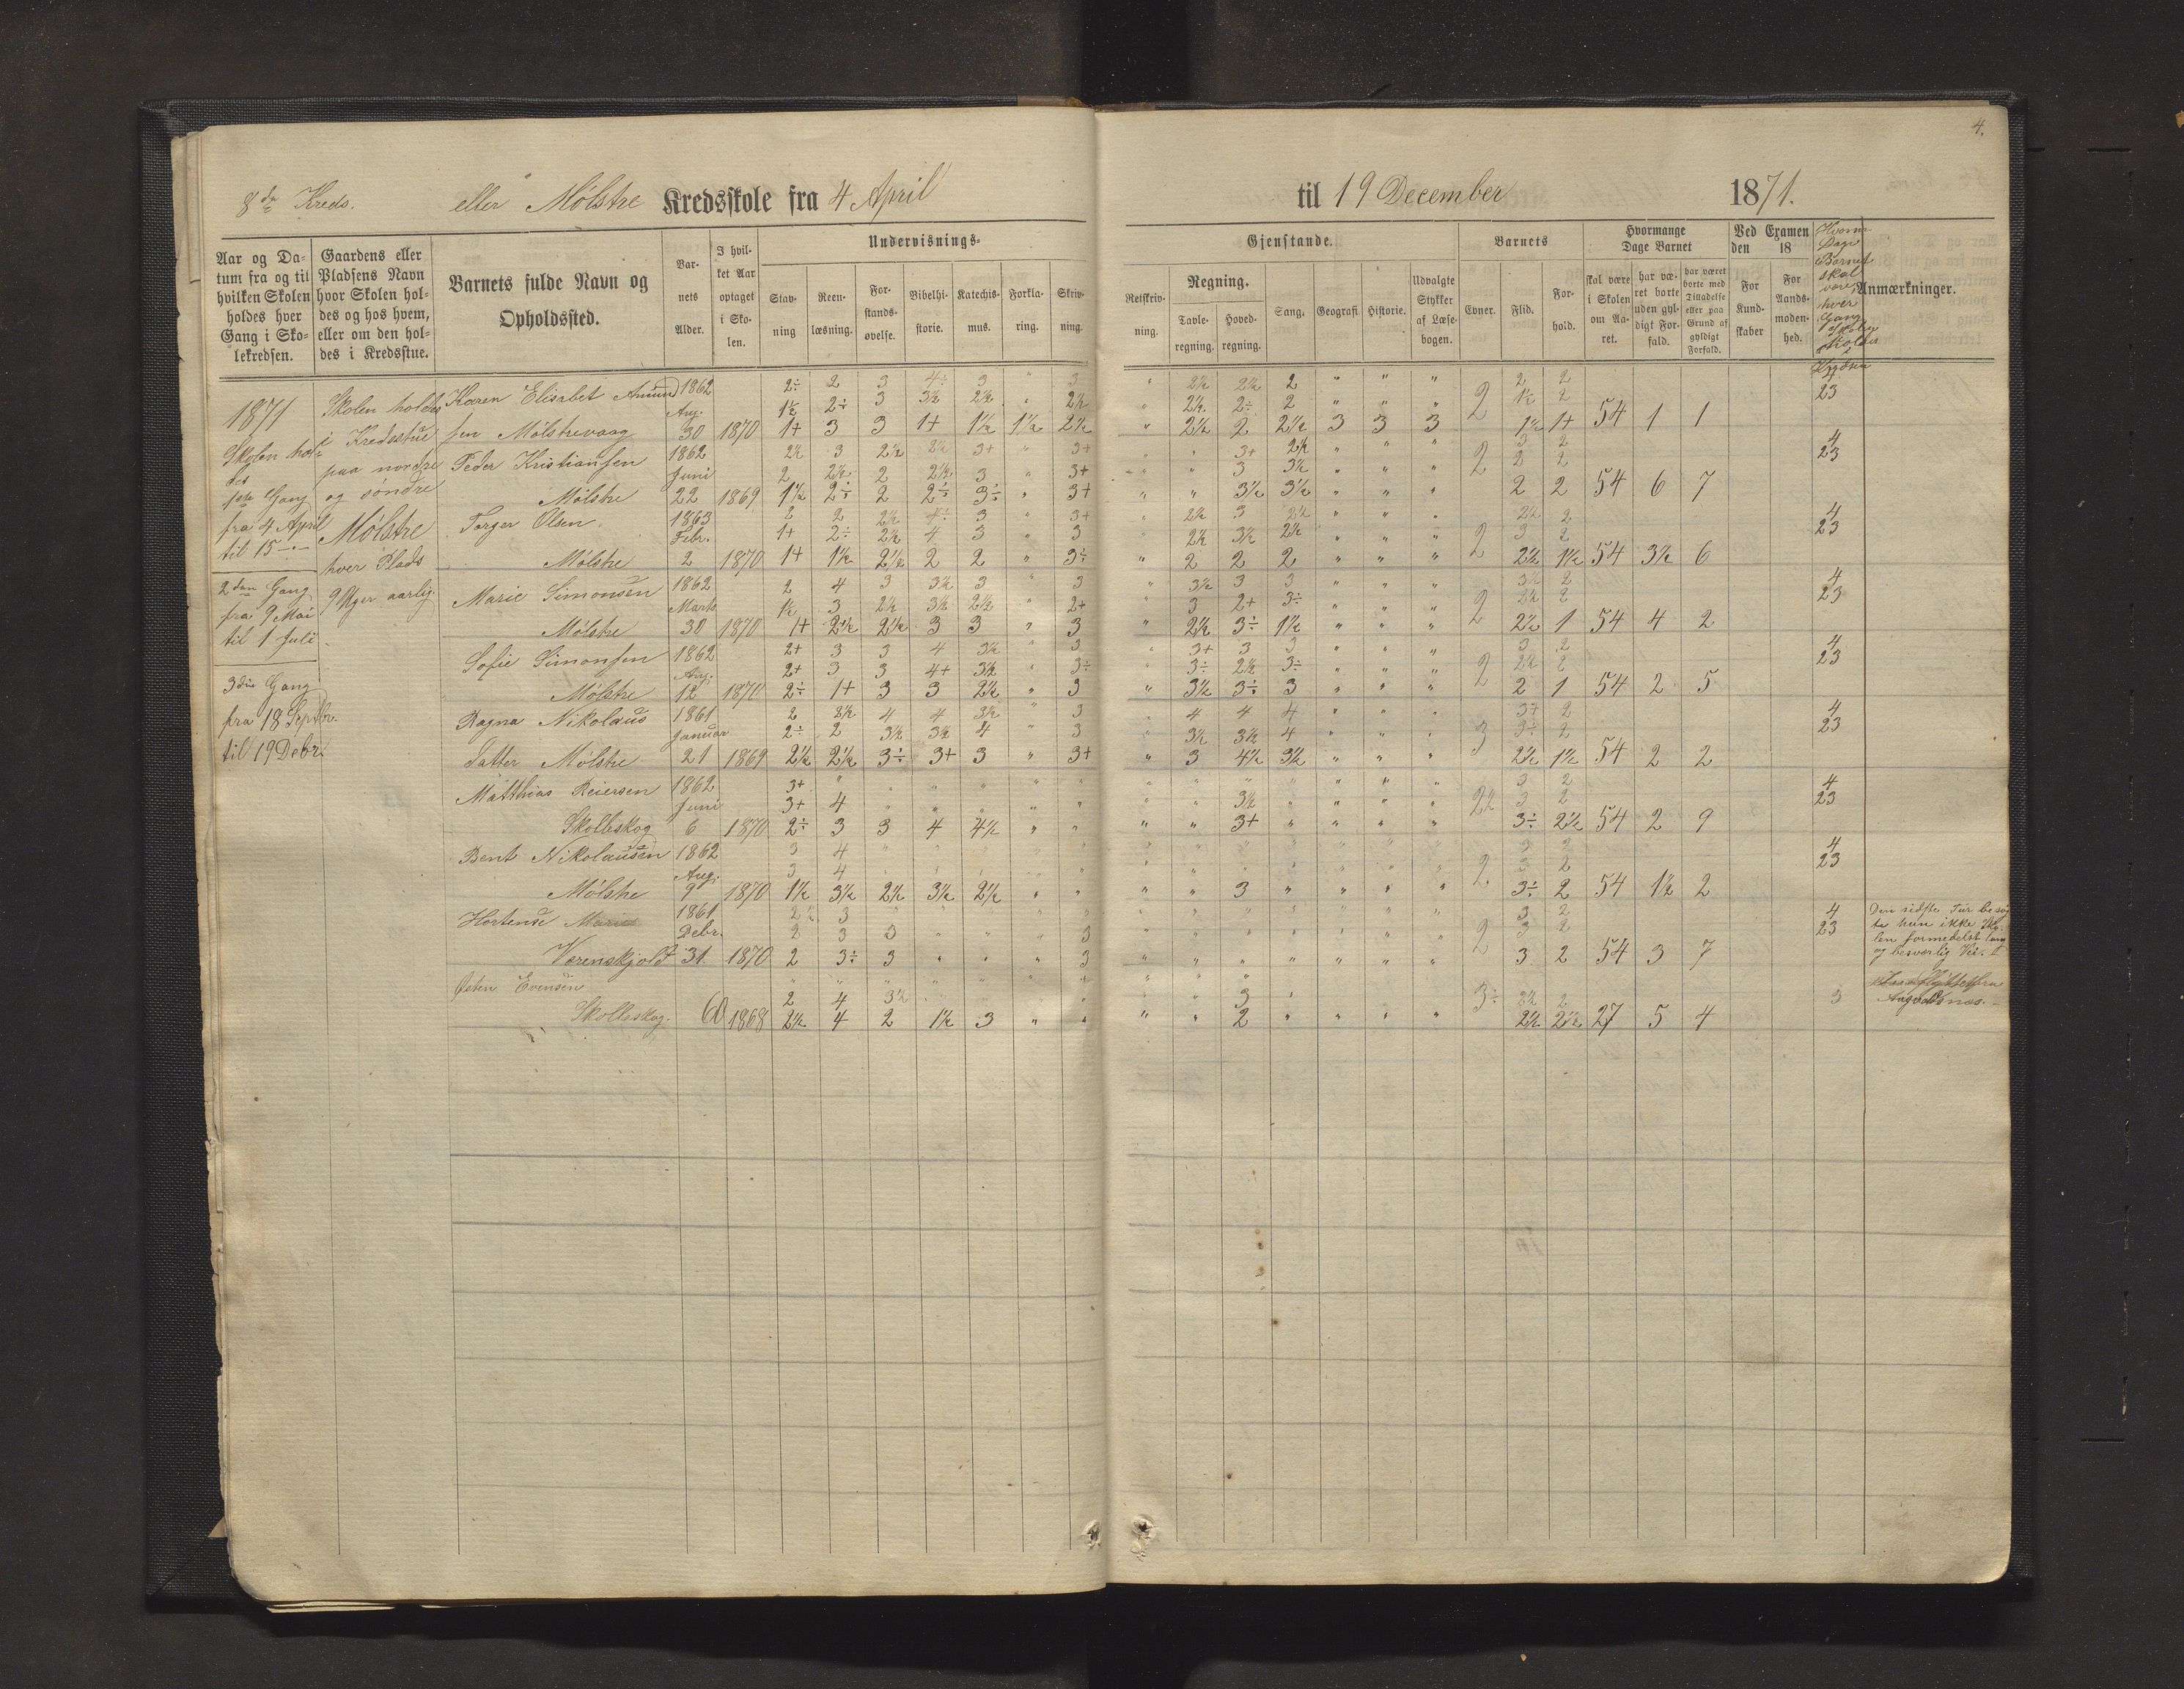 4.
8de Kreds. eller Mølstre Kredsskole fra 4 April til 19 December 1871.
Aar og Da-
tum fra og til
hvilken Skolen
holdes hver
Gang i Sko-
lekredsen.
Gaardens eller
Pladsens Navn
hvor Skolen hol-
des og hos hvem,
eller om den hol-
des i Kredsstue.
Barnets fulde Navn og
Opholdssted.
Bar-
nets
Alder.
I hvil-
ket Aar
optaget
i Sko-
len.
Undervisnings-
Stav-
ning
Reen-
læsning.
For-
stands-
øvelse.
Bibelhi-
storie.
Katechis-
mus.
Forkla-
ring.
Skriv-
ning.
Gjenstande.
Retskriv-
ning.
Regning.
Tavle-
regning.
Hoved-
regning.
Sang.
Geografi.
Historie.
Udvalgte
Stykker
af Læse-
bogen.
Barnets
Evner.
Flid.
For-
hold.
Hvormange
Dage Barnet
skal være
i Skolen
om Aa-
ret.
har væ-
ret borte
uden gyl-
digt For-
fald.
har været
borte med
Tilladelse
eller paa
Grund af
gyldigt
Forfald.
Ved Examen
den 18
For
Kund-
skaber
For
Aands-
moden-
hed.
Dage
Barnet
skal
være
hver
Gang
Skolen
holdes
Anmærkninger.
1871
Skolen hol-
des
1ste Gang
fra 4 April
til 15 -"-
2den Gang
fra 9 Mai
til 1 Juli
3die Gang
fra 18 Septbr.
til 19 Debr.
Skolen holdes
i Kredsstue
paa nordre
og søndre
Mølstre
hver Plads
9 Uger aarlig.
Karen Elisabet Amund 1862 2÷ 2 3 4÷ 3 " 3 " 2½ 2½ 2 " " " 2 2 4
Aug. 1½ 2÷ 3 3½ 2½ " 2½ " 2½ 2÷ 2 " " " 2 1½ 2 23
sen Mølstrevaag 30 1870 1+ 3 3 1+ 1½ 1½ 2½ " 2½ 2 2½ 3 3 3 1½ 1+ 54 1 1
Peder Kristiansen 1862 2½ 3 2½ 2½ 3+ " 3+ " " 3+ 2½ " " " 3 2 4
Juni 2 2½ 2 2½ 3 3+ " " 3 3½ " " " 2 2 2 23
Mølstre 22 1869 1½ 2÷ 2 2÷ 3÷ " 3+ " " 3½ 3½ " " " 2 2 54 6 7
Torger Olsen 1863 2 2 2½ 4÷ 3 " 3+ " 2½ 3 2½ " " " 2½ 2 4
Febr. 1+ 2÷ 2½ 4 3 " 3 " 2½ 3½ 2½ " " " 2 3 2 23
Mølstre 2 1870 1+ 1½ 2½ 2 2 " 3÷ " 2 2 2 " " " 2½ 1½ 54 3½ 6
Marie Simonsen 1862 2 4 3 3½ 3 " 3 " 3½ 3 3 " " " 3½ 2 4
Marts 1½ 3 2½ 3½ 2½ " 2+ " 3 2+ 3÷ " " " 2 2½ 2 23
Mølstre 30 1870 1+ 2½ 2½ 3 3 " 3 " 2½ 3÷ 1½ " " " 2½ 1 54 4 2
Sofie Simonsen 1862 2+ 3 3 4 3½ " 3 " 3+ 3 3 " " " 3 2 4
Aug. 2+ 3 3 4+ 3½ " 3÷ " 3÷ 2½ 3÷ " " " 2 2½ 2 23
Mølstre 12 1870 2÷ 1+ 3 3 2½ " 3 " 3½ 3÷ 3 " " " 2 1 54 2 5
Ragna Nikolaus 1861 2 2½ 4 4 3½ " 3 " 4 4 4 " " " 3+ 2 4
Januar 2÷ 2 3½ 3½ 4 3 " 3½ 3½ 4 " " " 3 3÷ 2 23
Datter Mølstre 21 1869 2½ 2½ 3÷ 3+ 3 " 3+ " 3 4½ 3½ " " " 2½ 1½ 54 2 2
Matthias Reiersen 1862 3+ " " " " " " " " " " " " " 3 2 4
Juni 3+ 4 " " " " " " " 3½ " " " " 2½ 3 2 23
Skolleskog 6 1870 2÷ 3 3 4 4½ " " " " 3+ " " " " 3÷ 2½ 54 2 9
Bent Nikolausen 1862 3 4 " " " " " " " " " " " " 3 2 4
Aug. 3 4 " " " " " " " " " " " " 2 3 2 23
Mølstre 9 1870 1½ 3½ 2½ 3½ 2½ " " " " 3 " " " " 3÷ 2 54 1½ 2
Hortense Marie 1861 2½ 3 " " " " " " " " " " " " 3 2 4
Debr. 2 3 3 " " " 3 " " " " " " " 2 3 2 23
Varenskjold 31 1870 2 3÷ 3 " " " 3 " " " " " " " 3 2 54 3 7
Den sidste Tur besøg
te hun ikke Sko-
len formedelst lang
og besværlig Vei.
Østen Evensen
2 4 3½ 3 3÷ 2½ 2 3
Skolleskog. 1868 2½ 4 2 1½ 3 " " " " 2 " " " " 2½ 2½ 27 5 4